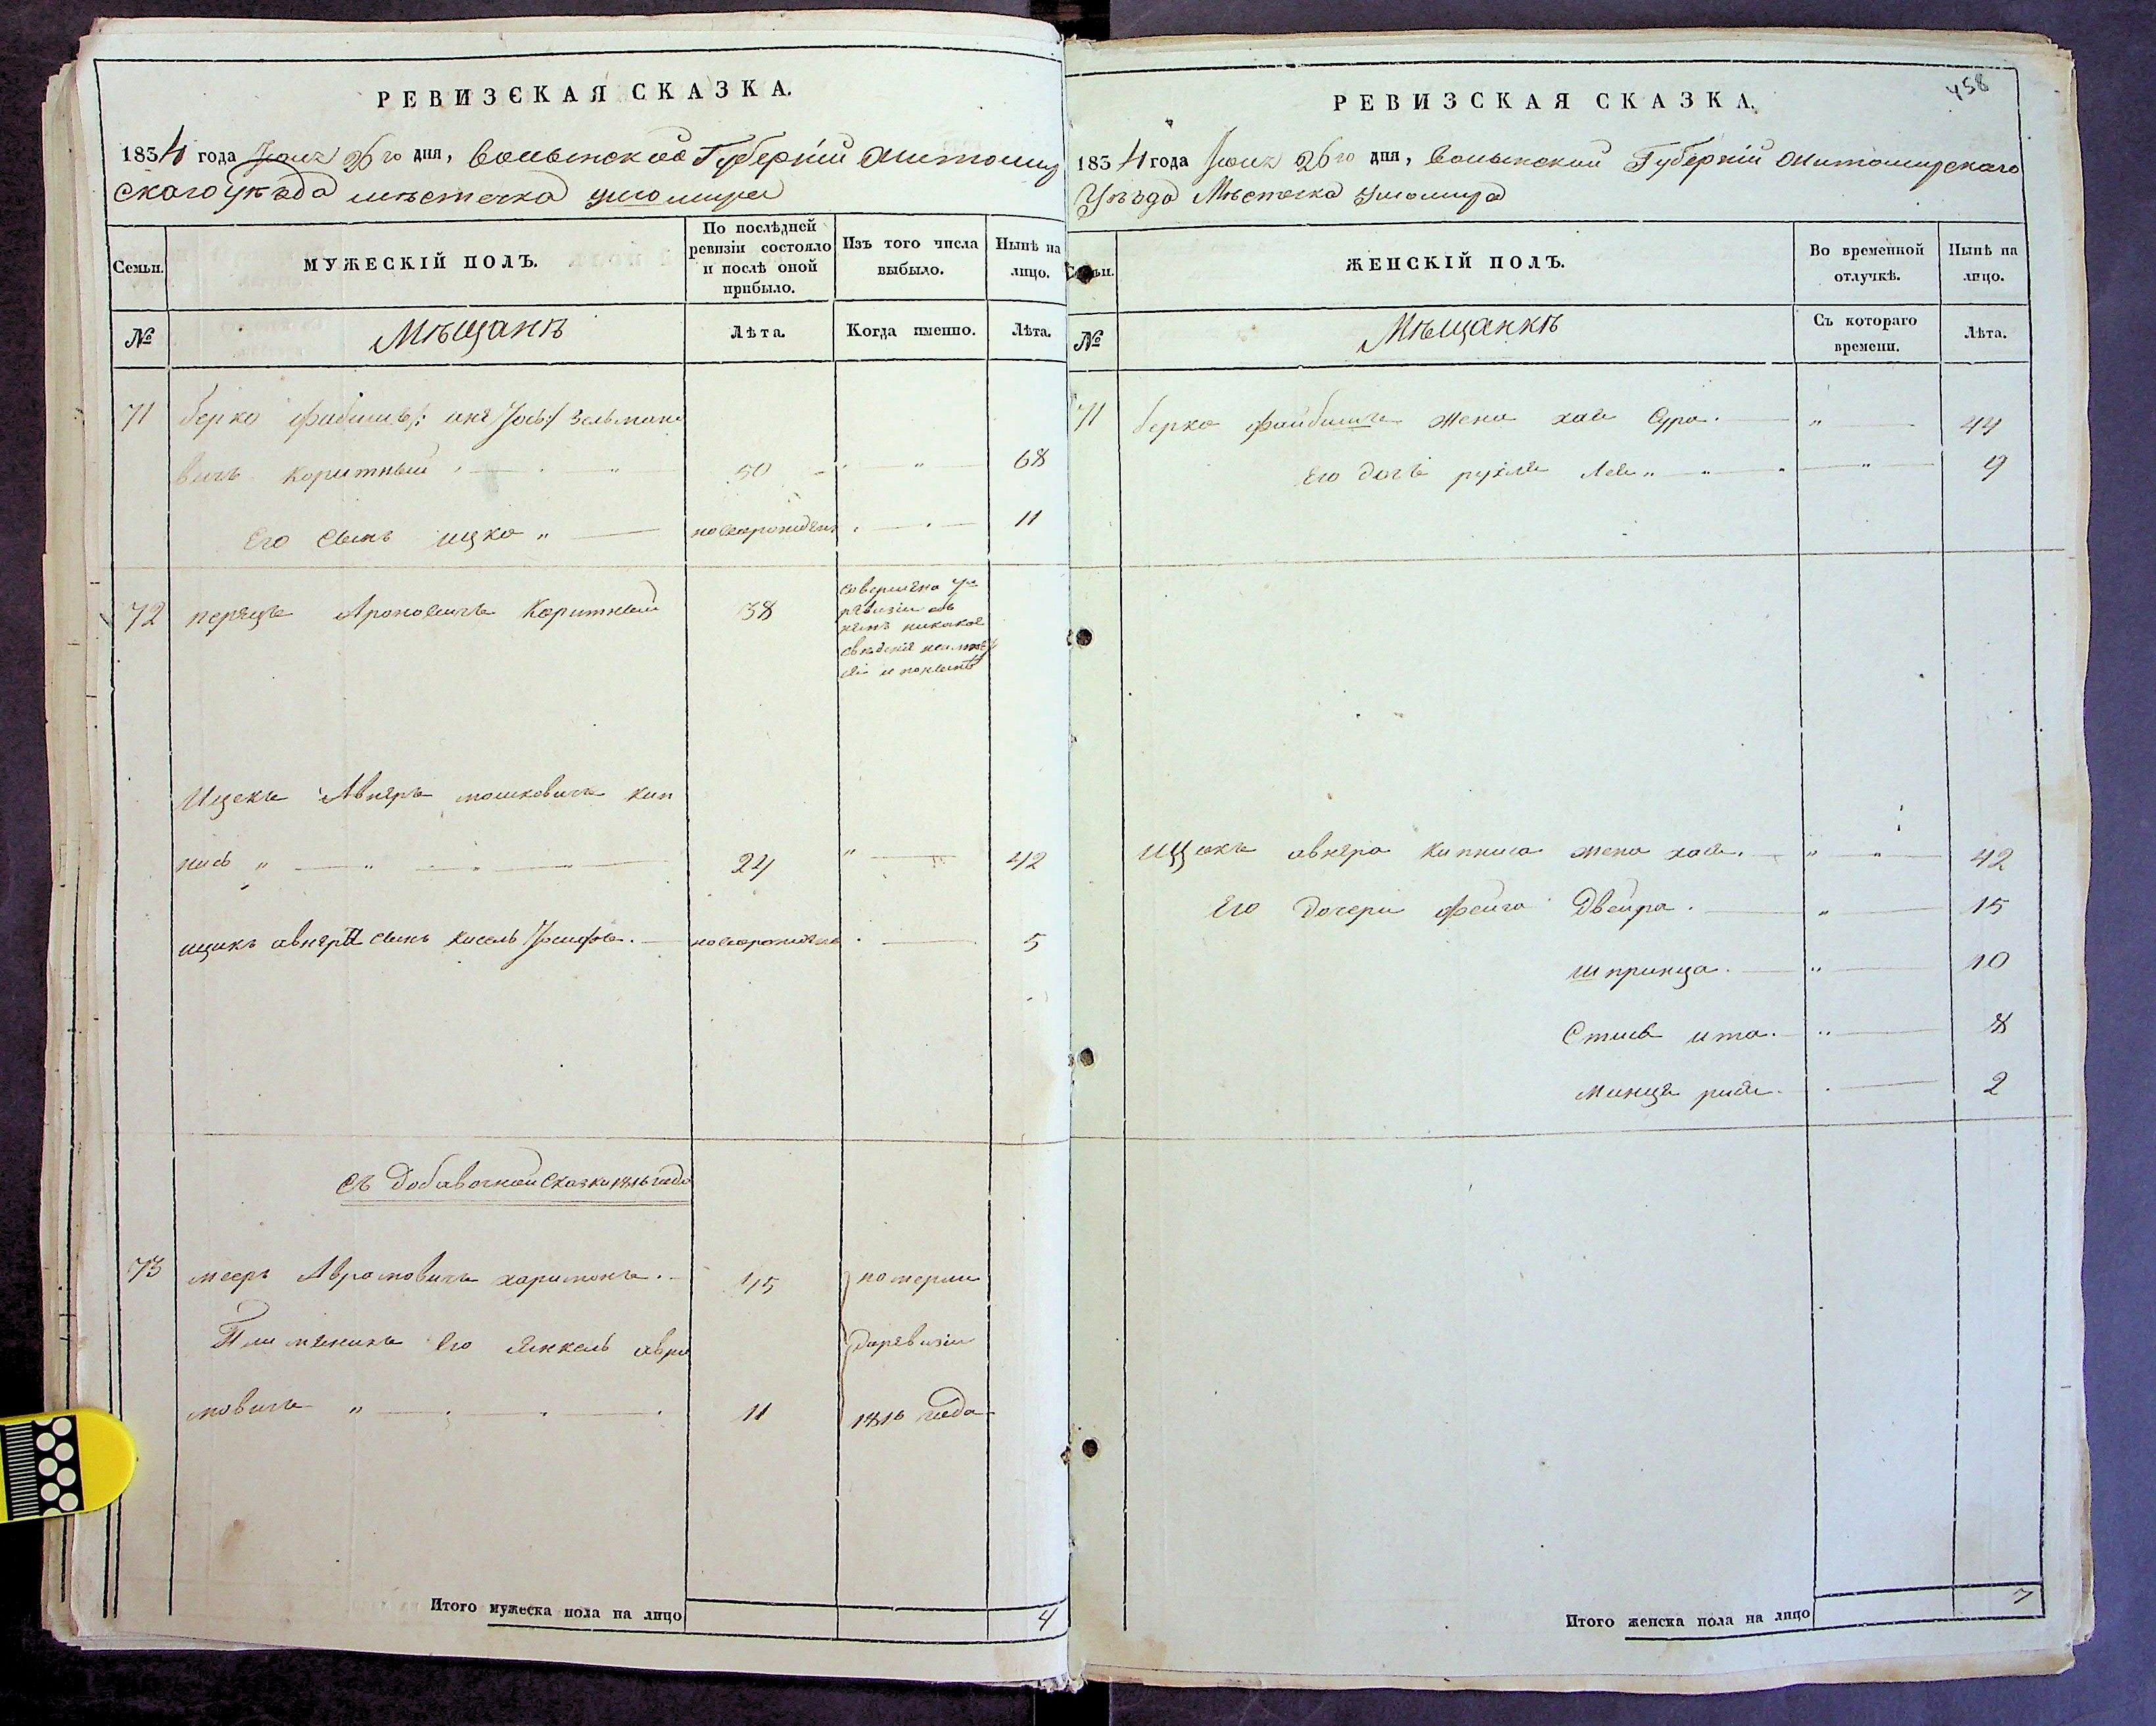 РЕВИЗСКАЯ СКАЗКА.
1834 года Іюня 26го дня, Волынской Губерніи Житомир
скаго уѣзда мѣстечка Ушомира
Семьи.
МУЖЕСКІЙ ПОЛЪ.
По послѣдней ревизіи состояло и послѣ оной прибыло.
Изъ того числа выбыло.
Нынѣ на лицо.
№
Мѣщанѣ
Лѣта.
Когда именно.
Лѣта.
71 берко Зельмано
вичъ Коритный 50 68
Его сынъ ицко новорожден 11
72 перецъ Ароновичъ Коритный 38
совершена 7я
ревизіи объ
немъ никакое
свѣденія
и понынѣ
Ицекъ Авнеръ мошковичъ кип
нисъ 24 42
ицикъ авнера сынъ кисель Іосифъ. новорожденъ 5
съ добавочной сказки 1816 года
73 мееръ Аврамовичъ харитонъ. 45
Племянникъ Его Янкель авра
мовичъ 11
померли
доревизіи
1816 года
Итого мужеска пола на лицо 4
458
РЕВИЗСКАЯ СКАЗКА.
1834 года Іюня 26го дня, Волынской Губерніи Житомирскаго
Уѣзда Мѣстечка Ушомира
Семьи.
ЖЕНСКІЙ ПОЛЪ.
Во временной отлучкѣ.
Нынѣ на лицо.
№
Мѣщанкѣ
Съ котораго времени.
Лѣта.
71 берка файбиша жена хая Сура. 44
Его дочь рухля лея 9
Ицекъ авнера Кипниса жена хая. 42
Его дочери фейга Двейра. 15
шпринца. 10
ита. 8
Минця 2
Итого женска пола на лицо 7